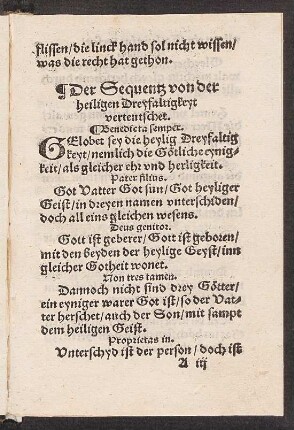 flissen/die linck hand sol nicht wissen/
was die recht hat gethon.
¶Der Sequentz von der
heiligen Dreyfaltigkeyt
verteutschet.
¶Benedicta semper.
GElobet sey die heylig Dreyfaltig
keyt/nemlich die Götliche eynig-
keit/als gleicher ehr vnd herligkeit.
Pater filius.
Got Vatter Got sun/Got heyliger
Geist/in dreyen namen vnterschiden/
doch all eins gleichen wesens.
Deus genitor.
Gott ist geberer/Gott ist geboren/
mit den beyden der heylige Geyst/inn
gleicher Gotheit wonet.
Non tres tamen.
Dannoch nicht sind drey Götter/
ein eyniger warer Got ist/so der Vat-
ter herschet/auch der Son/mit sampt
dem heiligen Geist.
Proprietas in.
Vnterschyd ist der person/doch ist
A iij